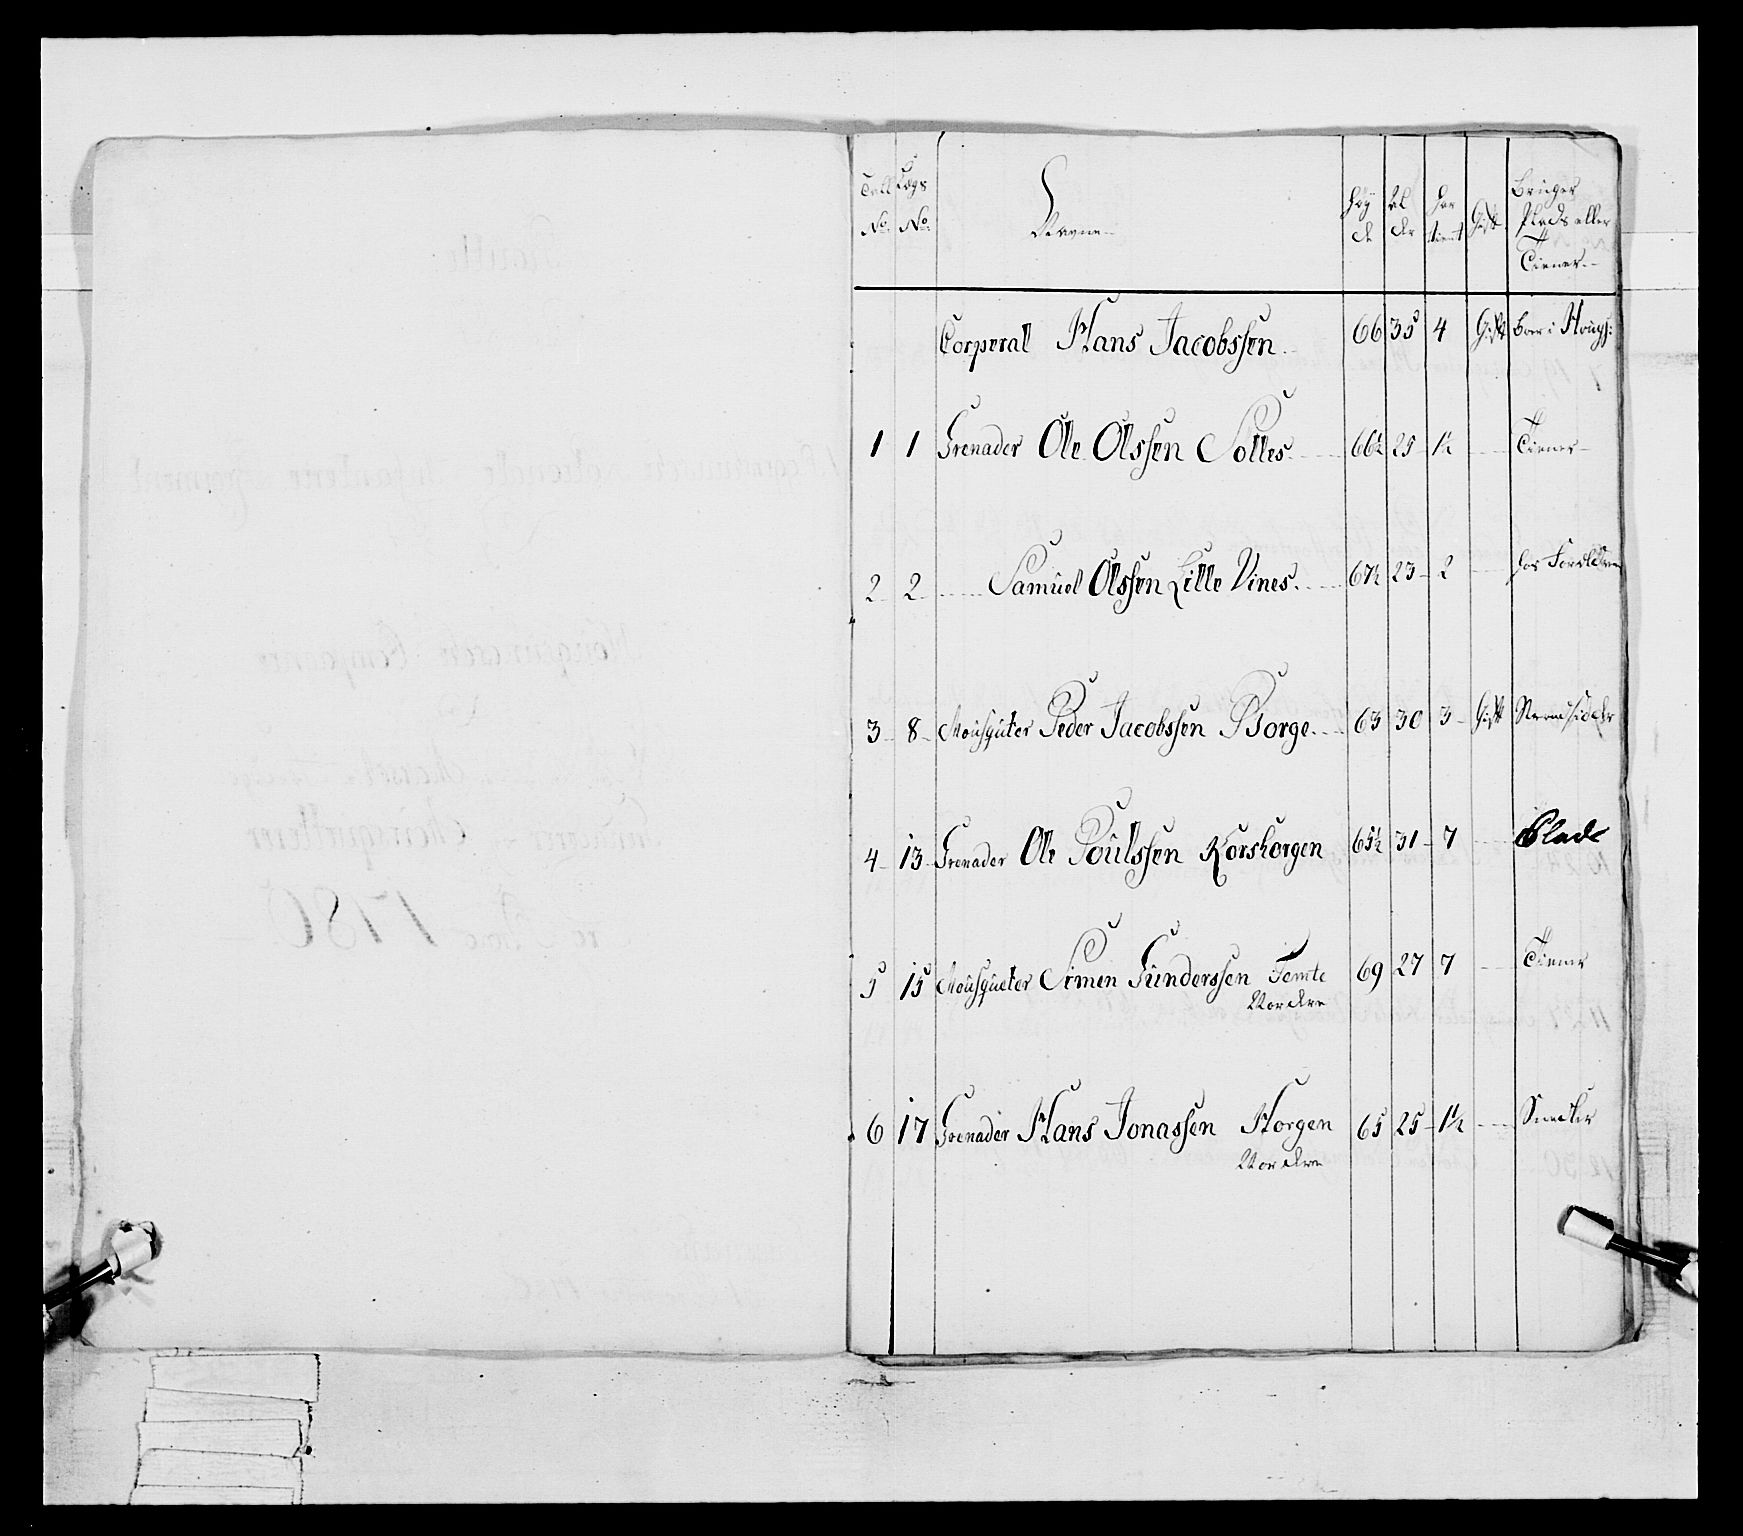 Tall No. Lægs No. Navne Høy de Al der Har tient Gift Bruger Plads eller Tiener
Corperal Hans Jacobssen 66 35 4 Gift Boer i
1 1 Grenader Ole Olssen Solles 66½ 25 1½ Tiener
2 2 Samuel Olssen Lille Vines 67½ 23 2 hos Forældrene
3 8 Mousquter Peder Jacobssen Borge 63 30 3 Gift
4 13 Grenader Ole Poulssen Korshorgen 65½ 31 7 Plads
5 15 Mousqueter Simen Gunderssen Tomte 69 27 7 Tiener
Nordre
6 17 Grenader Hans Jonassen Horgen 65 25 1½
Nordre